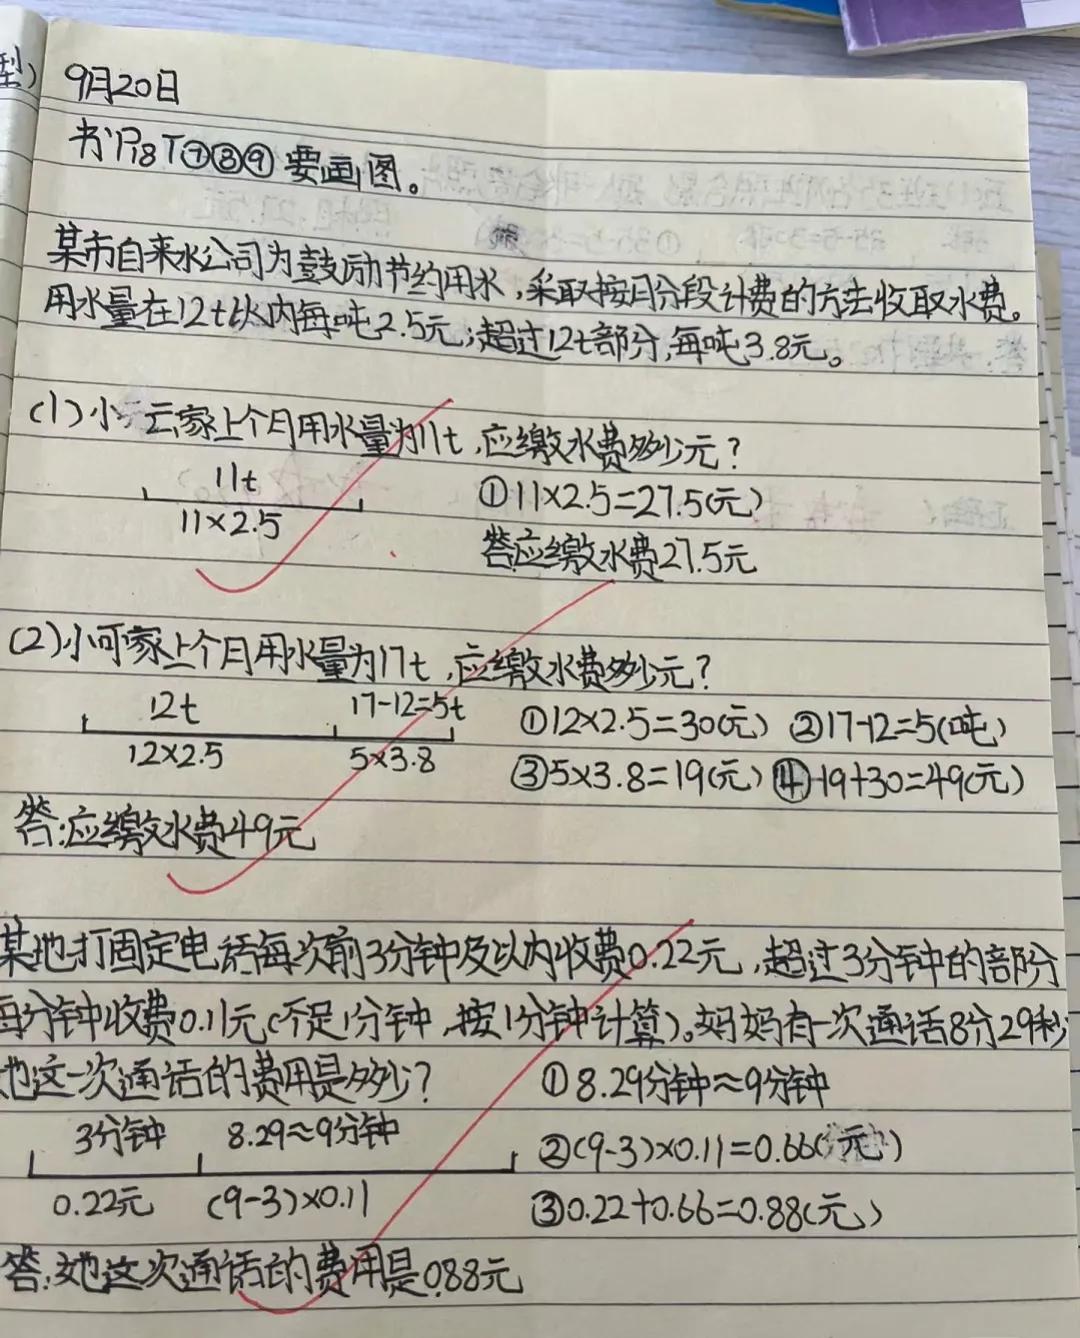 型)
9月20日
书P18 T⑦⑧⑨ 要画图。
某市自来水公司为鼓励节约用水,采取按月分段计费的方法收取水费。
用水量在12t以内每吨2.5元;超过12t部分,每吨3.8元。
(1)小云家上个月用水量为11t,应缴水费多少元?
11t
①11×2.5=27.5(元)
11×2.5
答应缴水费27.5元
(2)小可家上个月用水量为17t,应缴水费多少元?
12t 17-12=5t
①12×2.5=30(元) ②17-12=5(吨)
12×2.5 5×3.8
③5×3.8=19(元) ④19+30=49(元)
答:应缴水费49元
某地打固定电话每次前3分钟及以内收费0.22元,超过3分钟的部分
每分钟收费0.11元(不足1分钟,按1分钟计算)。妈妈有一次通话8分29秒
她这一次通话的费用是多少?
①8.29分钟≈9分钟
3分钟 8.29≈9分钟
②(9-3)×0.11=0.66(元)
0.22元 (9-3)×0.11
③0.22+0.66=0.88(元)
答:她这次通话的费用是0.88元